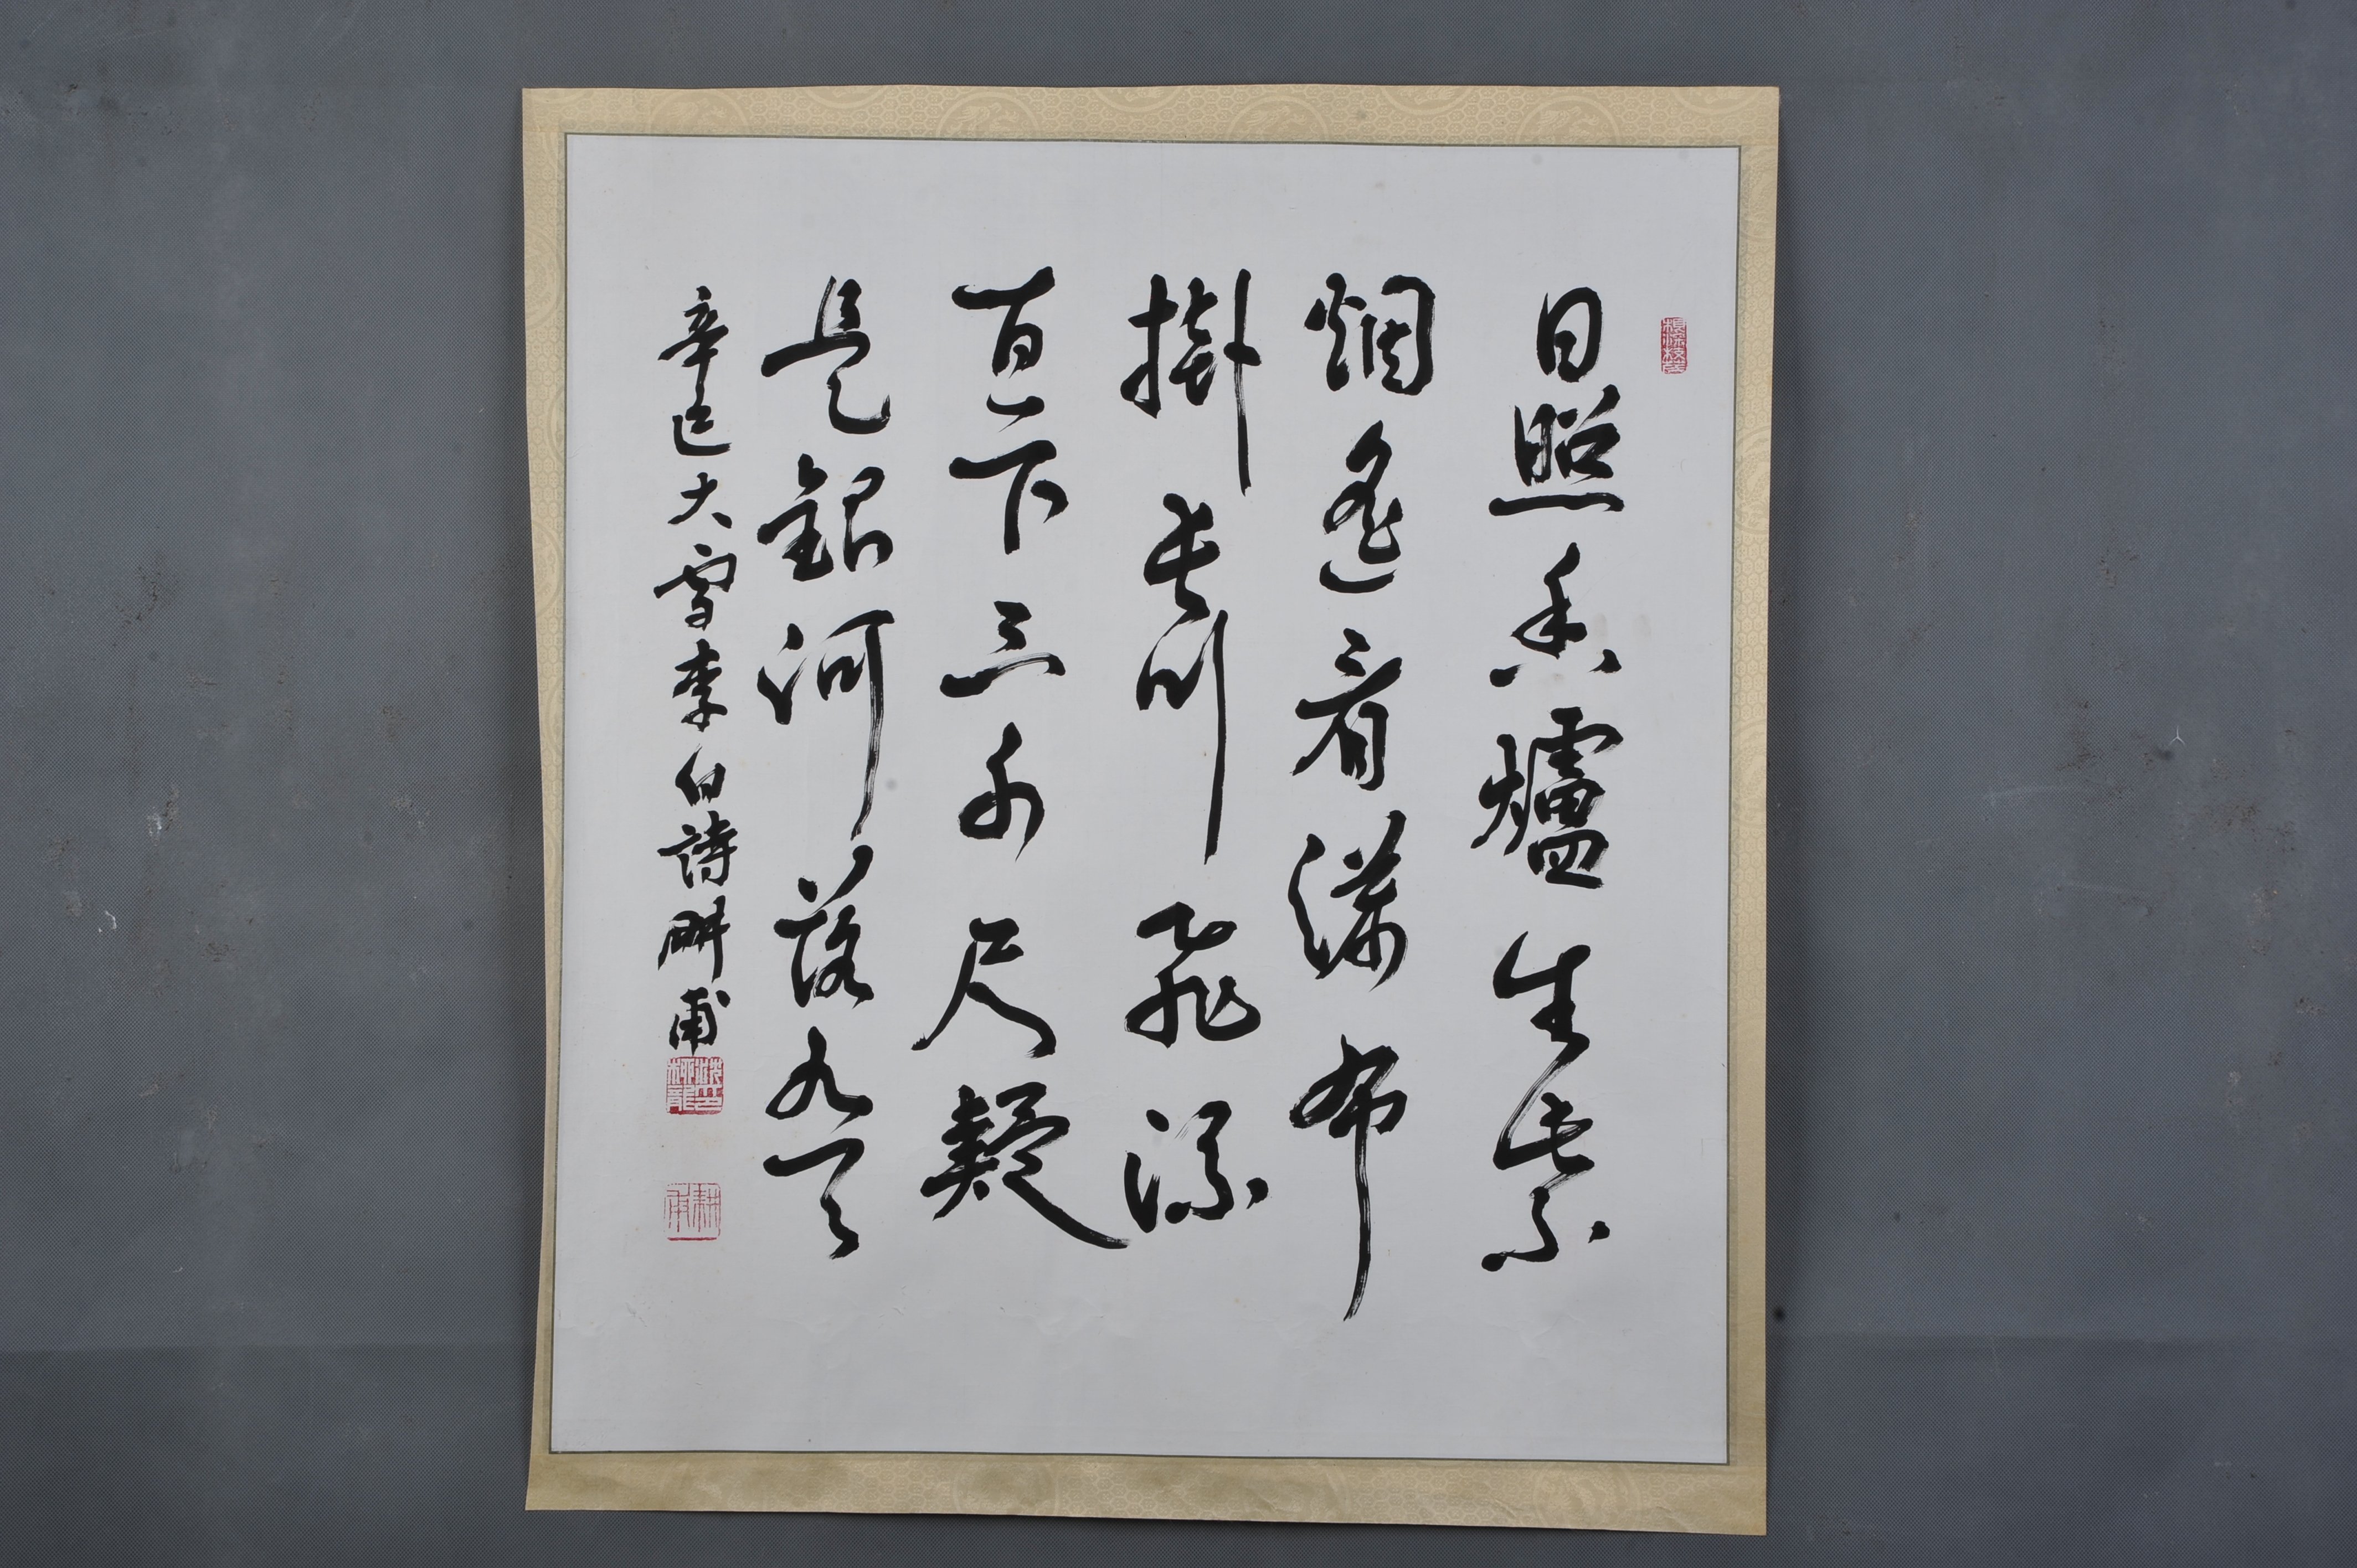 日照香爐生紫
烟遙看瀑布
掛長川飛流
直下三千尺疑
是銀河落九天
辛巳大雪李白詩畊甫